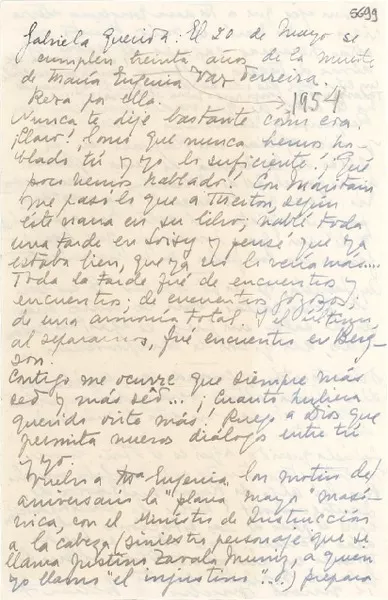 5699
Gabriela Querida: El 20 de Mayo se
cumplen treinta años de la muerte
de María Eugenia Vaz Ferreira.
Reza por ella.
1954
Nunca te dije bastante cómo era.
¡Claro!, como que nunca hemos ha-
blado tú y yo lo suficiente! ¡Qué
poco hemos hablado! Con Maritain
me pasó lo que a Merton, según
éste narra en su libro; hablé toda
una tarde en Soisy y pensé que ya
estaba bien, que ya no lo vería más...
Toda la tarde fué de encuentros y
encuentros; de encuentros gozosos;
de una armonía total. Y el último
al separarnos, fué encuentro en Berg-
son!
Contigo me ocurre que siempre más
sed y más sed...; Cuanto hubiera
querido verte más! Ruego a Dios que
permita nuevos diálogos entre tú
y yo.
Vuelvo a Mª Eugenia. Con motivo del
aniversario la "plana mayor" masó-
nica, con el Ministro de Instrucción
a la cabeza (siniestro personaje que se
llama Justino Zavala Muniz, a quien
yo llamo "el injustino"...) prepara